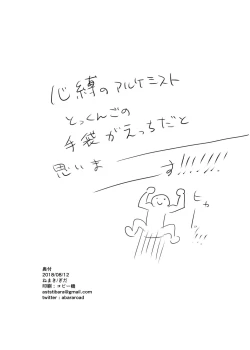 心縛のアルケミスト
とっくんごの
手袋がえっちだと
思いま
す!!!!!!
ヒャー
奥付
2018/08/12
ねまき/ぎだ
印刷：コピー機
astatibara@gmail.com
twitter：abararoad